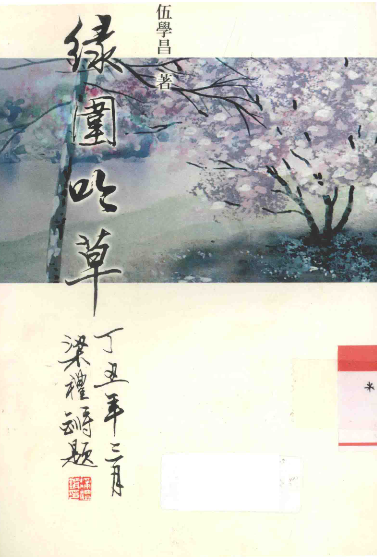 伍學昌 著
綠園吟草
丁丑年三月
梁禮 題